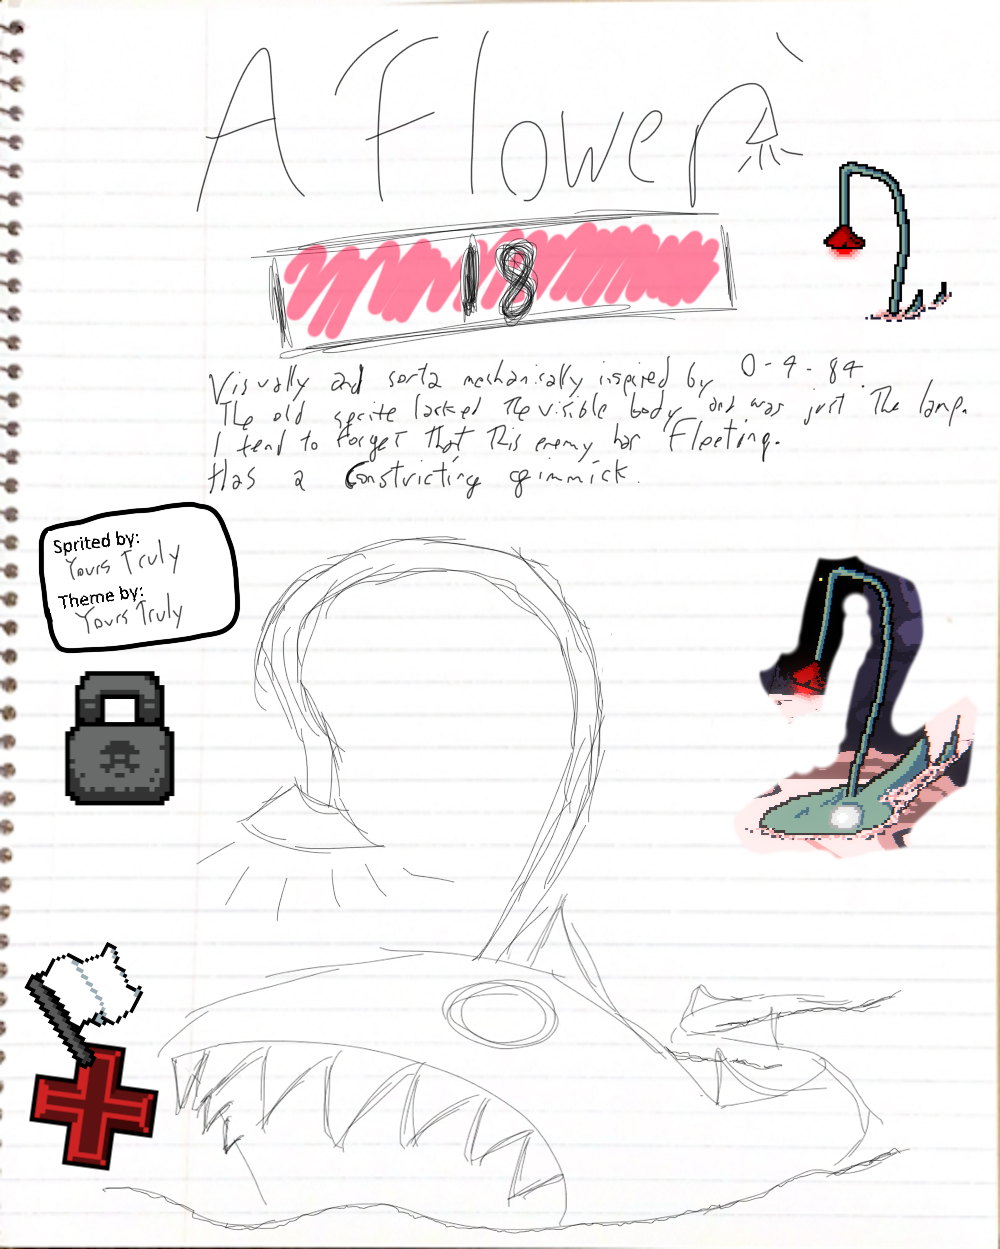 A Flower
18
Visually and sorta mechanically inspired by O-4-84
The old sprite lacked the visible body and was just the lamp.
I tend to forget that this enemy has Fleeting.
Has a Constricting gimmick.
Sprited by:
Yours Truly
Theme by:
Yours Truly